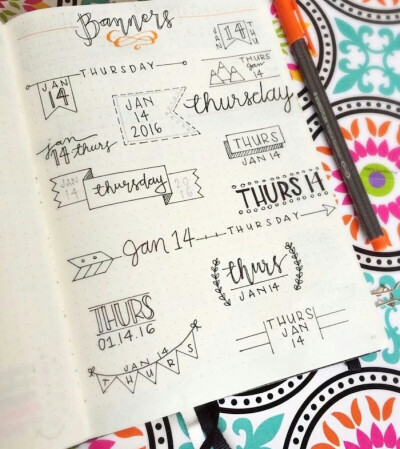 Banners
JAN
14
THURSDAY
JAN
14
2016
JAN
14
THU
THURS
Jan
14
thursday
Jan
14 thurs
THURS
JAN 14
JAN
14
thursday
20
16
THURS 14
Jan 14
THURSDAY
thurs
JAN 14
THURS
01.14.16
JAN 14
THURS
THURS
JAN
14